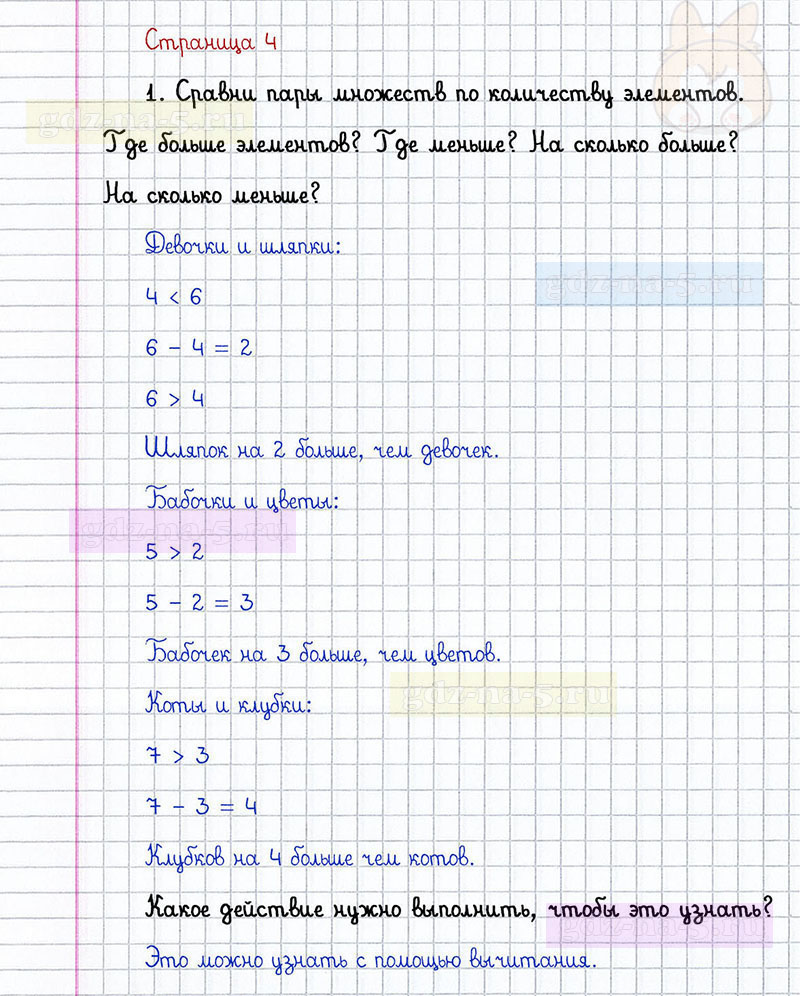 Страница 4
1. Сравни пары множеств по количеству элементов.
gdz-na-5.ru
Где больше элементов? Где меньше? На сколько больше?
На сколько меньше?
Девочки и шляпки:
gdz-na-5.ru
4 < 6
6 - 4 = 2
6 > 4
Шляпок на 2 больше, чем девочек.
Бабочки и цветы:
gdz-na-5.ru
5 > 2
5 - 2 = 3
Бабочек на 3 больше, чем цветов.
gdz-na-5.ru
Коты и клубки:
7 > 3
7 - 3 = 4
Клубков на 4 больше чем котов.
Какое действие нужно выполнить, чтобы это узнать?
gdz-na-5.ru
Это можно узнать с помощью вычитания.